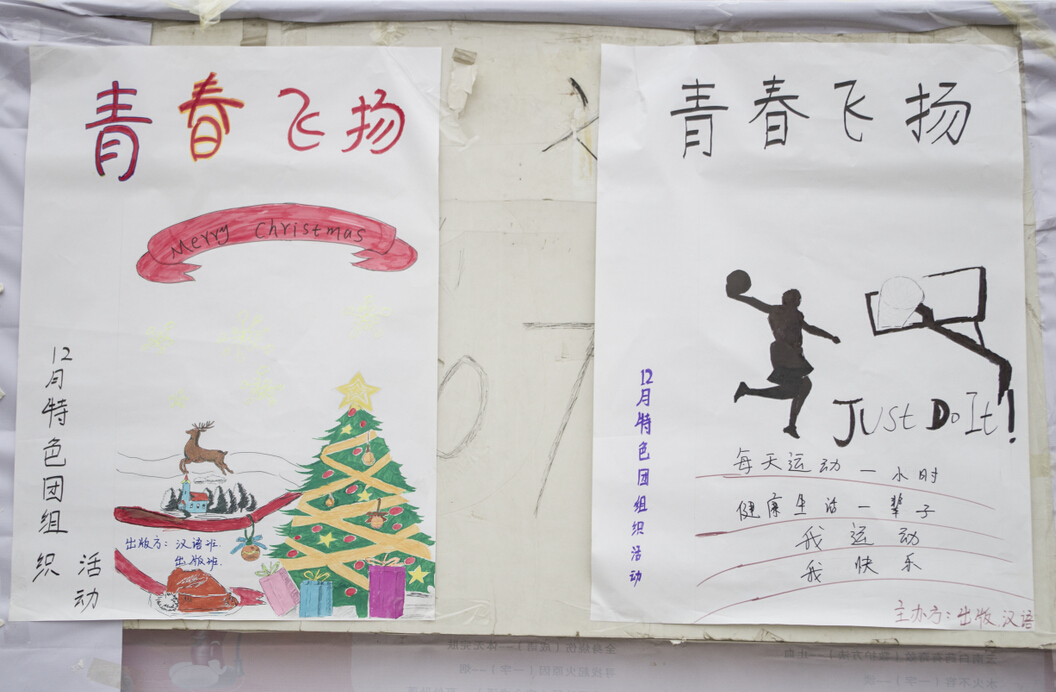 青春飞扬
Merry Christmas
12月特色团组织活动
出版方：汉语班
出版班.
青春飞扬
12月特色团组织活动
Just Do It!
每天运动一小时
健康生活一辈子
我运动
我快乐
主办方：出版.汉语